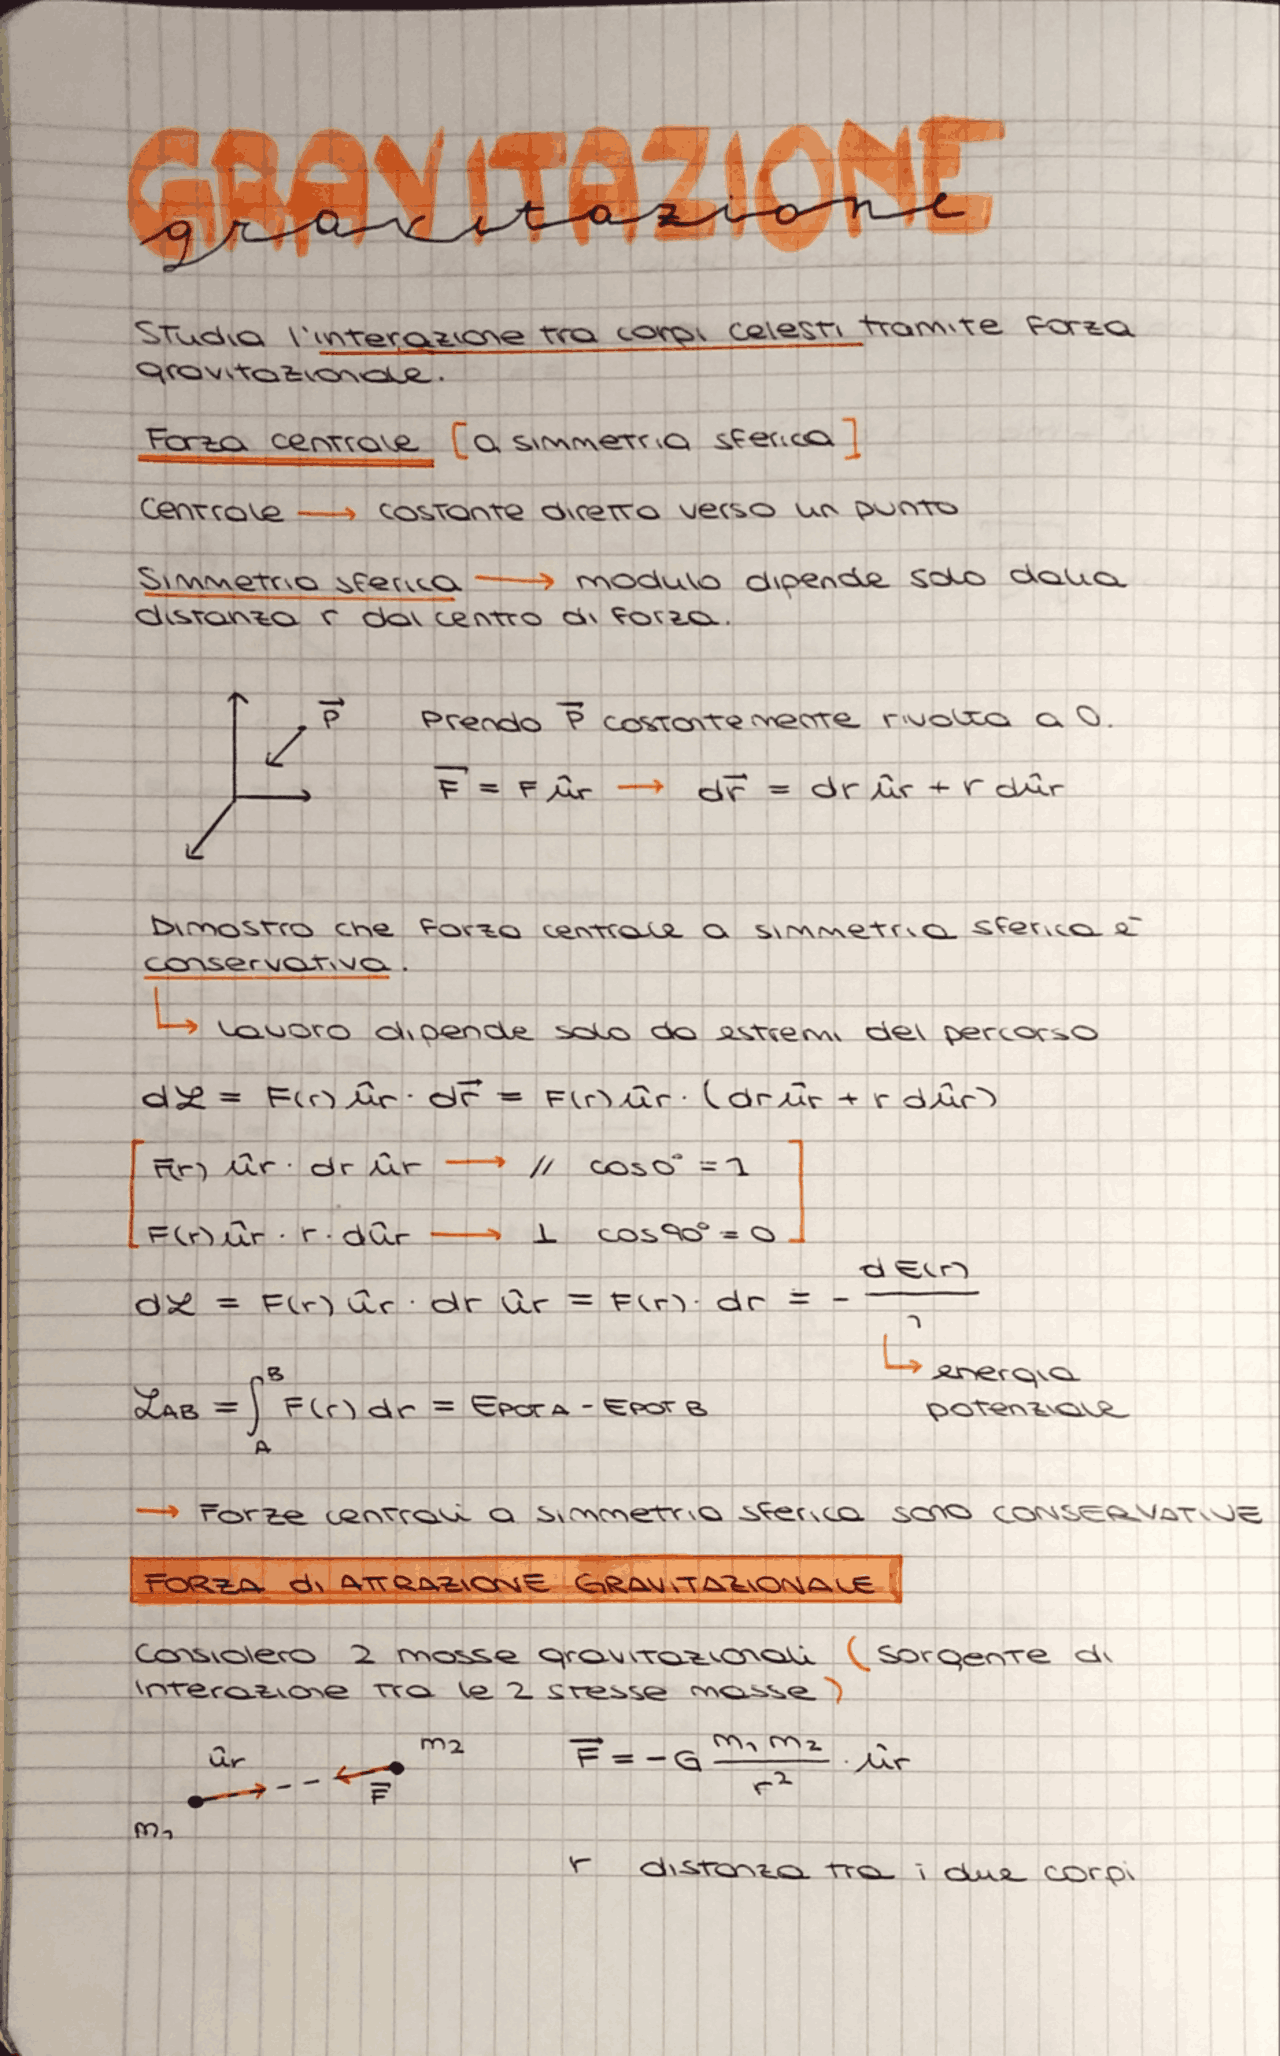 GRAVITAZIONE
gravitazione
Studia l'interazione tra corpi celesti tramite forza
gravitazionale.
Forza centrale [a simmetria sferica]
Centrale → costante diretta verso un punto
Simmetria sferica → modulo dipende solo dalla
distanza r dal centro di forza.
P⃗ Prendo P⃗ costantemente rivolta a O.
F⃗ = F ûr → dr⃗ = dr ûr + r dûr
Dimostro che forza centrale a simmetria sferica è
conservativa.
↳ lavoro dipende solo da estremi del percorso
dℒ = F(r) ûr · dr⃗ = F(r) ûr · (dr ûr + r dûr)
F(r) ûr · dr ûr → // cos0° = 1
F(r) ûr · r · dûr → ⊥ cos90° = 0
dℒ = F(r) ûr · dr ûr = F(r) · dr = - dE(r)
↳ energia
potenziale
ℒAB = ∫ₐᴮ F(r) dr = EPOT A - EPOT B
→ Forze centrali a simmetria sferica sono CONSERVATIVE
FORZA di ATTRAZIONE GRAVITAZIONALE
Considero 2 masse gravitazionali (sorgente di
interazione tra le 2 stesse masse)
ûr m2 F⃗ = -G m1 m2 / r² · ûr
F⃗
m1
r distanza tra i due corpi